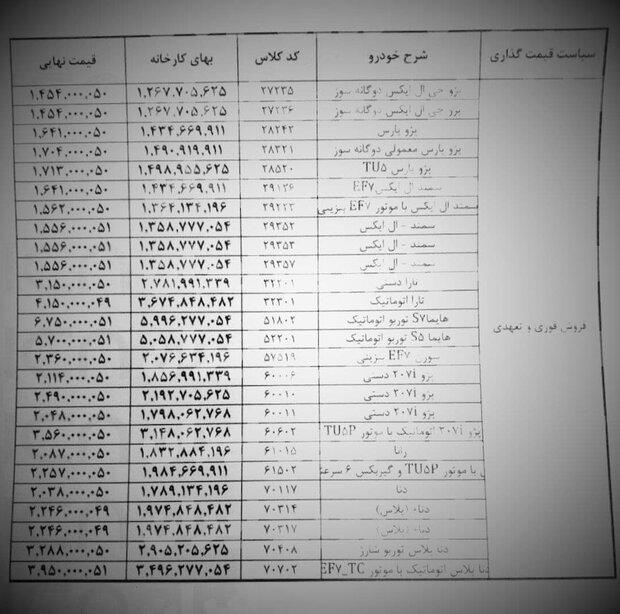 سیاست قیمت گذاری شرح خودرو کد کلاس بهای کارخانه قیمت نهایی
فروش فوری و تعهدی
پژو جی ال ایکس دوگانه سوز ۲۷۲۳۵ ۱،۲۶۷،۷۰۵،۶۲۵ ۱،۴۵۴،۰۰۰،۰۵۰
پژو جی ال ایکس دوگانه سوز ۲۷۲۳۶ ۱،۲۶۷،۷۰۵،۶۲۵ ۱،۴۵۴،۰۰۰،۰۵۰
پژو پارس ۲۸۲۴۲ ۱،۴۳۴،۶۶۹،۹۱۱ ۱،۶۴۱،۰۰۰،۰۵۰
پژو پارس معمولی دوگانه سوز ۲۸۳۲۱ ۱،۴۹۰،۹۱۹،۹۱۱ ۱،۷۰۴،۰۰۰،۰۵۰
پژو پارس TU۵ ۲۸۵۲۰ ۱،۴۹۸،۹۵۵،۶۲۵ ۱،۷۱۳،۰۰۰،۰۵۰
سمند ال ایکس EF۷ ۲۹۱۲۶ ۱،۴۳۴،۶۶۹،۹۱۱ ۱،۶۴۱،۰۰۰،۰۵۰
سمند ال ایکس با موتور EF۷ بنزینی ۲۹۲۲۳ ۱،۳۶۴،۱۳۴،۱۹۶ ۱،۵۶۲،۰۰۰،۰۵۰
سمند - ال ایکس ۲۹۳۵۲ ۱،۳۵۸،۷۷۷،۰۵۴ ۱،۵۵۶،۰۰۰،۰۵۱
سمند - ال ایکس ۲۹۳۵۳ ۱،۳۵۸،۷۷۷،۰۵۴ ۱،۵۵۶،۰۰۰،۰۵۱
سمند - ال ایکس ۲۹۳۵۷ ۱،۳۵۸،۷۷۷،۰۵۴ ۱،۵۵۶،۰۰۰،۰۵۱
تارا دستی ۳۲۲۰۱ ۲،۷۸۱،۹۹۱،۳۳۹ ۳،۱۵۰،۰۰۰،۰۵۰
تارا اتوماتیک ۳۲۳۰۱ ۳،۶۷۴،۸۴۸،۴۸۲ ۴،۱۵۰،۰۰۰،۰۴۹
هایما S۷ توربو اتوماتیک ۵۱۸۰۲ ۵،۹۹۶،۲۷۷،۰۵۴ ۶،۷۵۰،۰۰۰،۰۵۱
هایما S۵ توربو اتوماتیک ۵۲۲۰۱ ۵،۰۵۸،۷۷۷،۰۵۴ ۵،۷۰۰،۰۰۰،۰۵۱
سورن EF۷ بنزینی ۵۷۵۱۹ ۲،۰۷۶،۶۳۴،۱۹۶ ۲،۳۶۰،۰۰۰،۰۵۰
پژو ۲۰۷i دستی ۶۰۰۰۶ ۱،۸۵۶،۹۹۱،۳۳۹ ۲،۱۱۴،۰۰۰،۰۵۰
پژو ۲۰۷i دستی ۶۰۰۱۰ ۲،۱۹۲،۷۰۵،۶۲۵ ۲،۴۹۰،۰۰۰،۰۵۰
پژو ۲۰۷i دستی ۶۰۰۱۱ ۱،۷۹۸،۰۶۲،۷۶۸ ۲،۰۴۸،۰۰۰،۰۵۰
پژو ۲۰۷i اتوماتیک با موتور TU۵P ۶۰۶۰۲ ۳،۱۴۸،۰۶۲،۷۶۸ ۳،۵۶۰،۰۰۰،۰۵۰
رانا ۶۱۰۱۵ ۱،۸۳۲،۸۸۴،۱۹۶ ۲،۰۸۷،۰۰۰،۰۵۰
با موتور TU۵P و گیربکس ۶ سرعته ۶۱۵۰۲ ۱،۹۸۴،۶۶۹،۹۱۱ ۲،۲۵۷،۰۰۰،۰۵۰
دنا ۷۰۱۱۷ ۱،۷۸۹،۱۳۴،۱۹۶ ۲،۰۳۸،۰۰۰،۰۵۰
دنا+ (پلاس) ۷۰۳۱۴ ۱،۹۷۴،۸۴۸،۴۸۲ ۲،۲۴۶،۰۰۰،۰۴۹
دنا+ (پلاس) ۷۰۳۱۷ ۱،۹۷۴،۸۴۸،۴۸۲ ۲،۲۴۶،۰۰۰،۰۴۹
دنا پلاس توربو شارژ ۷۰۴۰۸ ۲،۹۰۵،۲۰۵،۶۲۵ ۳،۲۸۸،۰۰۰،۰۵۰
دنا پلاس اتوماتیک با موتور EF۷_TC ۷۰۷۰۲ ۳،۴۹۶،۲۷۷،۰۵۴ ۳،۹۵۰،۰۰۰،۰۵۱